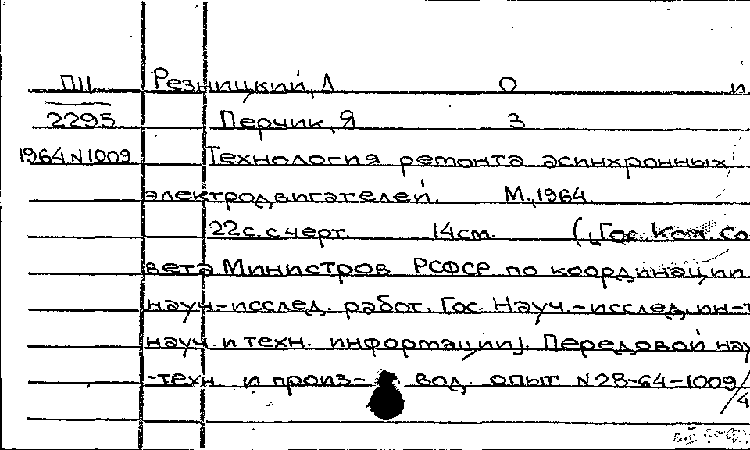 ПЦ Резницкий, Л О и
2295 Перчик, Я З
1964 N1009 Технология ремонта асинхронных
электродвигателей. М., 1964
22 с. с черт 14 см. („Гос. Ком. Со
вета Министров РСФСР по координации
науч-исслед. работ. Гос. Науч.-исслед. ин-т
науч. и техн. информации). Передовой нау
-техн. и произ- вод. опыт N28-64-1009/
4